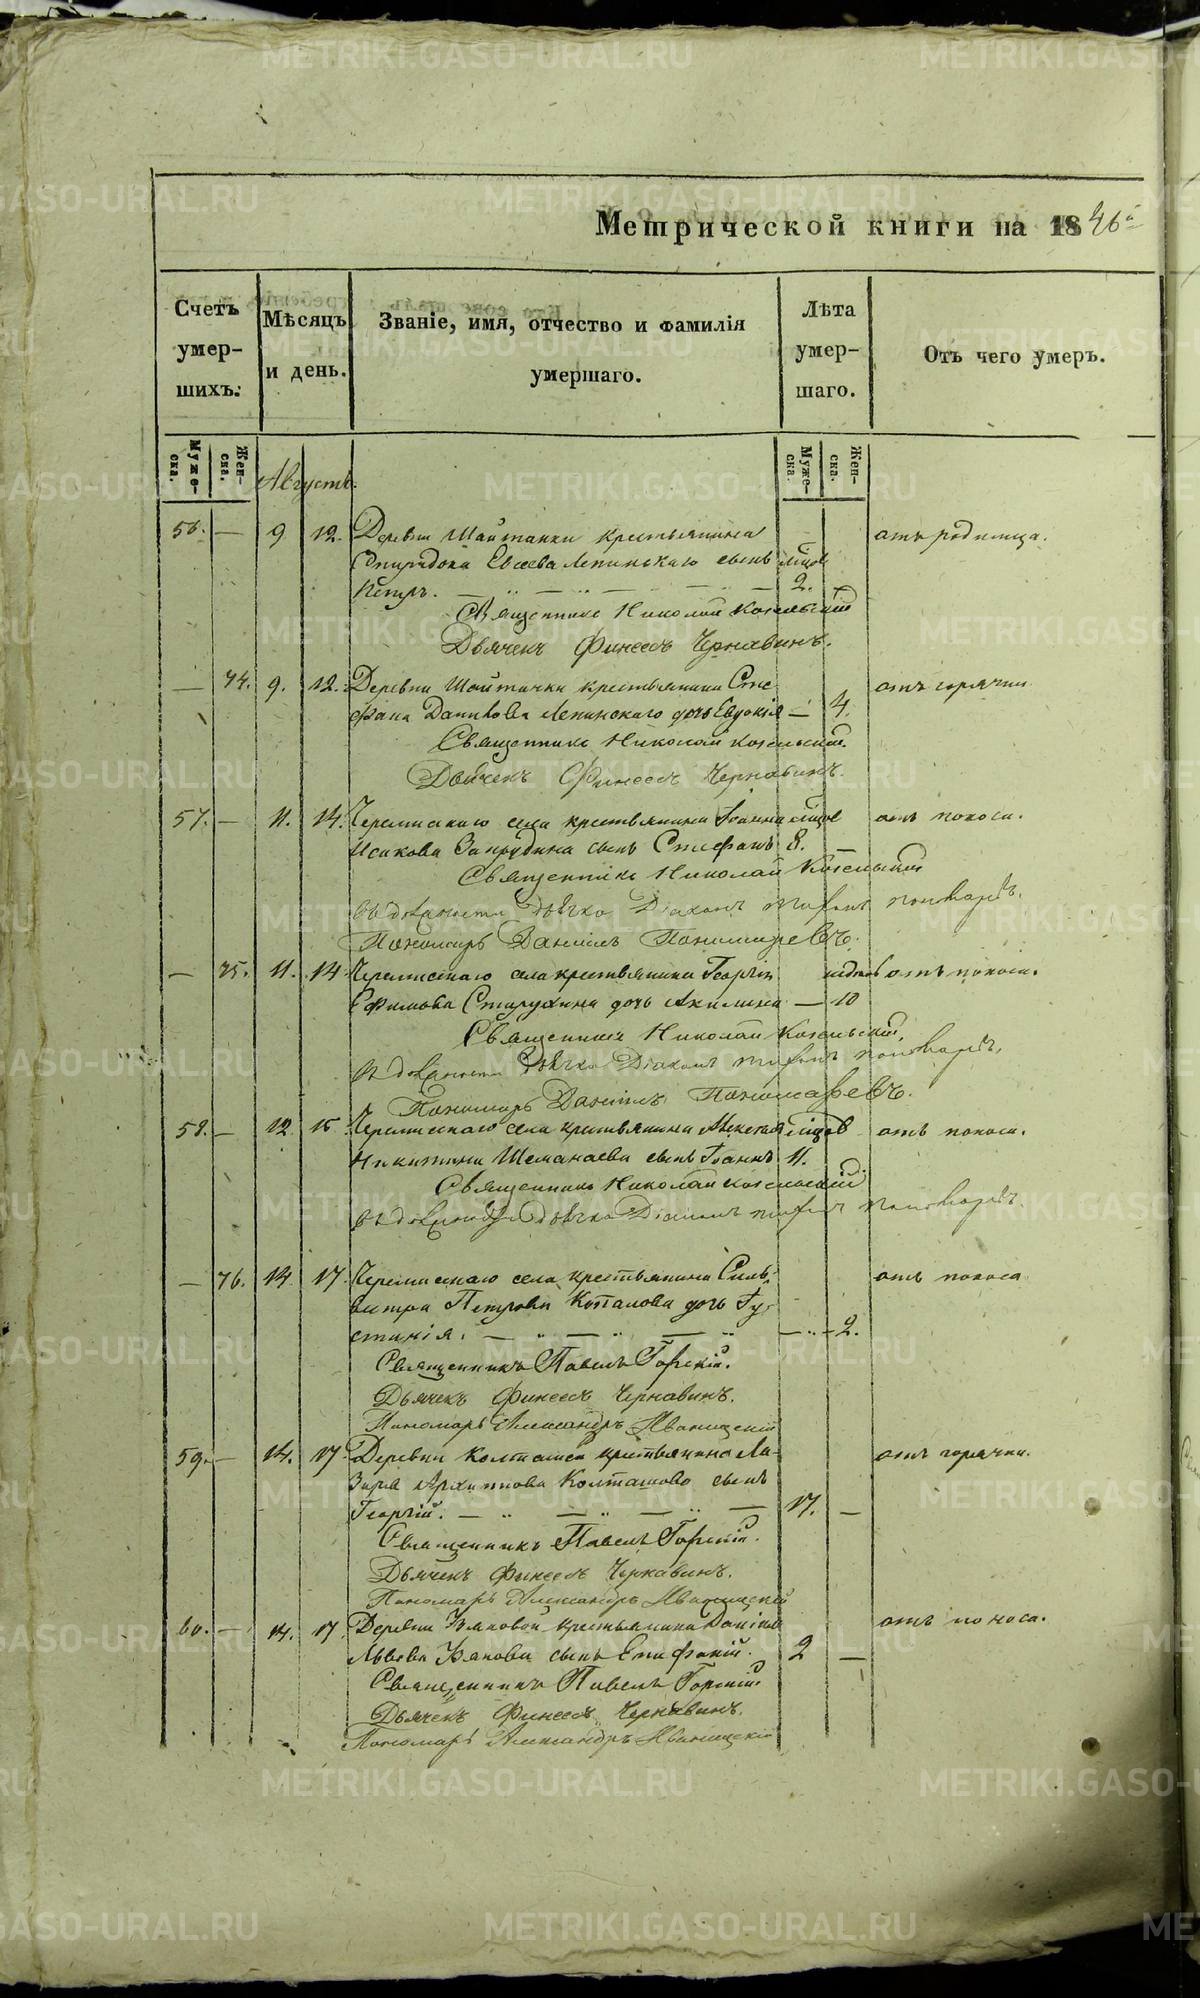 Метрической книги на 1846й
Счетъ умер-шихъ.
Мѣсяцъ и день.
Званіе, имя, отчество и фамилія умершаго.
Лѣта умер-шаго.
Отъ чего умеръ.
Муже-ска.
Жен-ска.
Августъ.
Муже-ска.
Жен-ска.
56. — 9 12. Деревни Шайтанки крестьянина отъ родимца.
Спиридона Евсеева Лепинскаго сынъ мѣсцов
Петръ. — 2. —
Священникъ Николай Косельскій
Дьячекъ Финеесъ Чернавинъ.
— 74. 9. 12. Деревни Шайтанки крестьянина Сте- отъ горячки
фана Данилова Лепинскаго дочь Евдокія — 4.
Священникъ Николай Косельскій.
Дьячекъ Финеесъ Чернавинъ.
57. — 11. 14. Черемискаго села крестьянина Іоанна мѣсцов отъ поноса.
Исакова Запрудина сынъ Стефанъ 8.
Священникъ Николай Косельскій
Діаконъ
Пономарь Даніилъ Пономаревъ.
— 75. 11. 14 Черемискаго села крестьянина Георгія недѣль отъ поноса.
Ефимова Старухина дочь Акилина — 10
Священникъ Николай Косельскій,
Діаконъ
Пономарь Даніилъ Пономаревъ.
58. — 12 15 Черемискаго села крестьянина Алексея мѣсцов отъ поноса.
Никитина Шеманаева сынъ Іоаннъ 11.
Священникъ Николай Косельскій
Діаконъ
— 76. 14. 17. Черемискаго села крестьянина Силь- отъ поноса
вестра Петрова Копалова дочь Іу-
стинія. — — — — 2.
Священникъ Павелъ Горскій.
Дьячекъ Финеесъ Чернавинъ.
Пономарь Александръ Иваницскій
59. — 14. 17 Деревни Колташей крестьянина Ла- отъ горячки.
заря Архиппова Колташова сынъ
Георгій. — — — — 17. —
Священникъ Павелъ Горскій.
Дьячекъ Финеесъ Чернавинъ.
Пономарь Александръ Иваницскій
60. — 14. 17. Деревни Узяновой крестьянина Даніила отъ поноса.
Львова Узянова сынъ Епифаній. 2 —
Священникъ Павелъ Горскій
Дьячекъ Финеесъ Чернавинъ.
Пономарь Александръ Иваницскій
METRIKI.GASO-URAL.RU